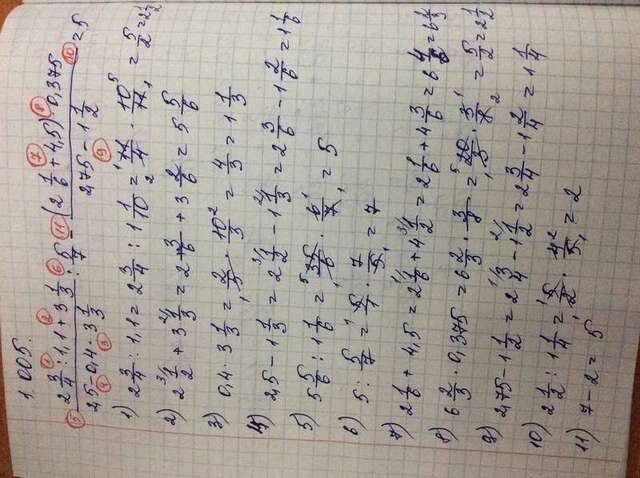 1.005.
(2 3/4 : 1,1 + 3 1/3)/(2,5 - 0,4 · 3 1/3) : 5/7 - ((2 1/6 + 4,5) · 0,375)/(2,75 - 1 1/2) = 5
1) 2 3/4 : 1,1 = 2 3/4 : 1 1/10 = 11/4 · 10/11 = 5/2 = 2 1/2
2) 2 1/2 + 3 1/3 = 2 3/6 + 3 2/6 = 5 5/6
3) 0,4 · 3 1/3 = 2/5 · 10/3 = 4/3 = 1 1/3
4) 2,5 - 1 1/3 = 2 1/2 - 1 1/3 = 2 3/6 - 1 2/6 = 1 1/6
5) 5 5/6 : 1 1/6 = 35/6 · 6/7 = 5
6) 5 : 5/7 = 5/1 · 7/5 = 7
7) 2 1/6 + 4,5 = 2 1/6 + 4 1/2 = 2 1/6 + 4 3/6 = 6 4/6 =
8) 6 2/3 · 0,375 = 6 2/3 · 3/8 = 20/3 · 3/8 = 5/2 = 2 1/2
9) 2,75 - 1 1/2 = 2 3/4 - 1 1/2 = 2 3/4 - 1 2/4 = 1 1/4
10) 2 1/2 : 1 1/4 = 5/2 · 4/5 = 2
11) 7 - 2 = 5